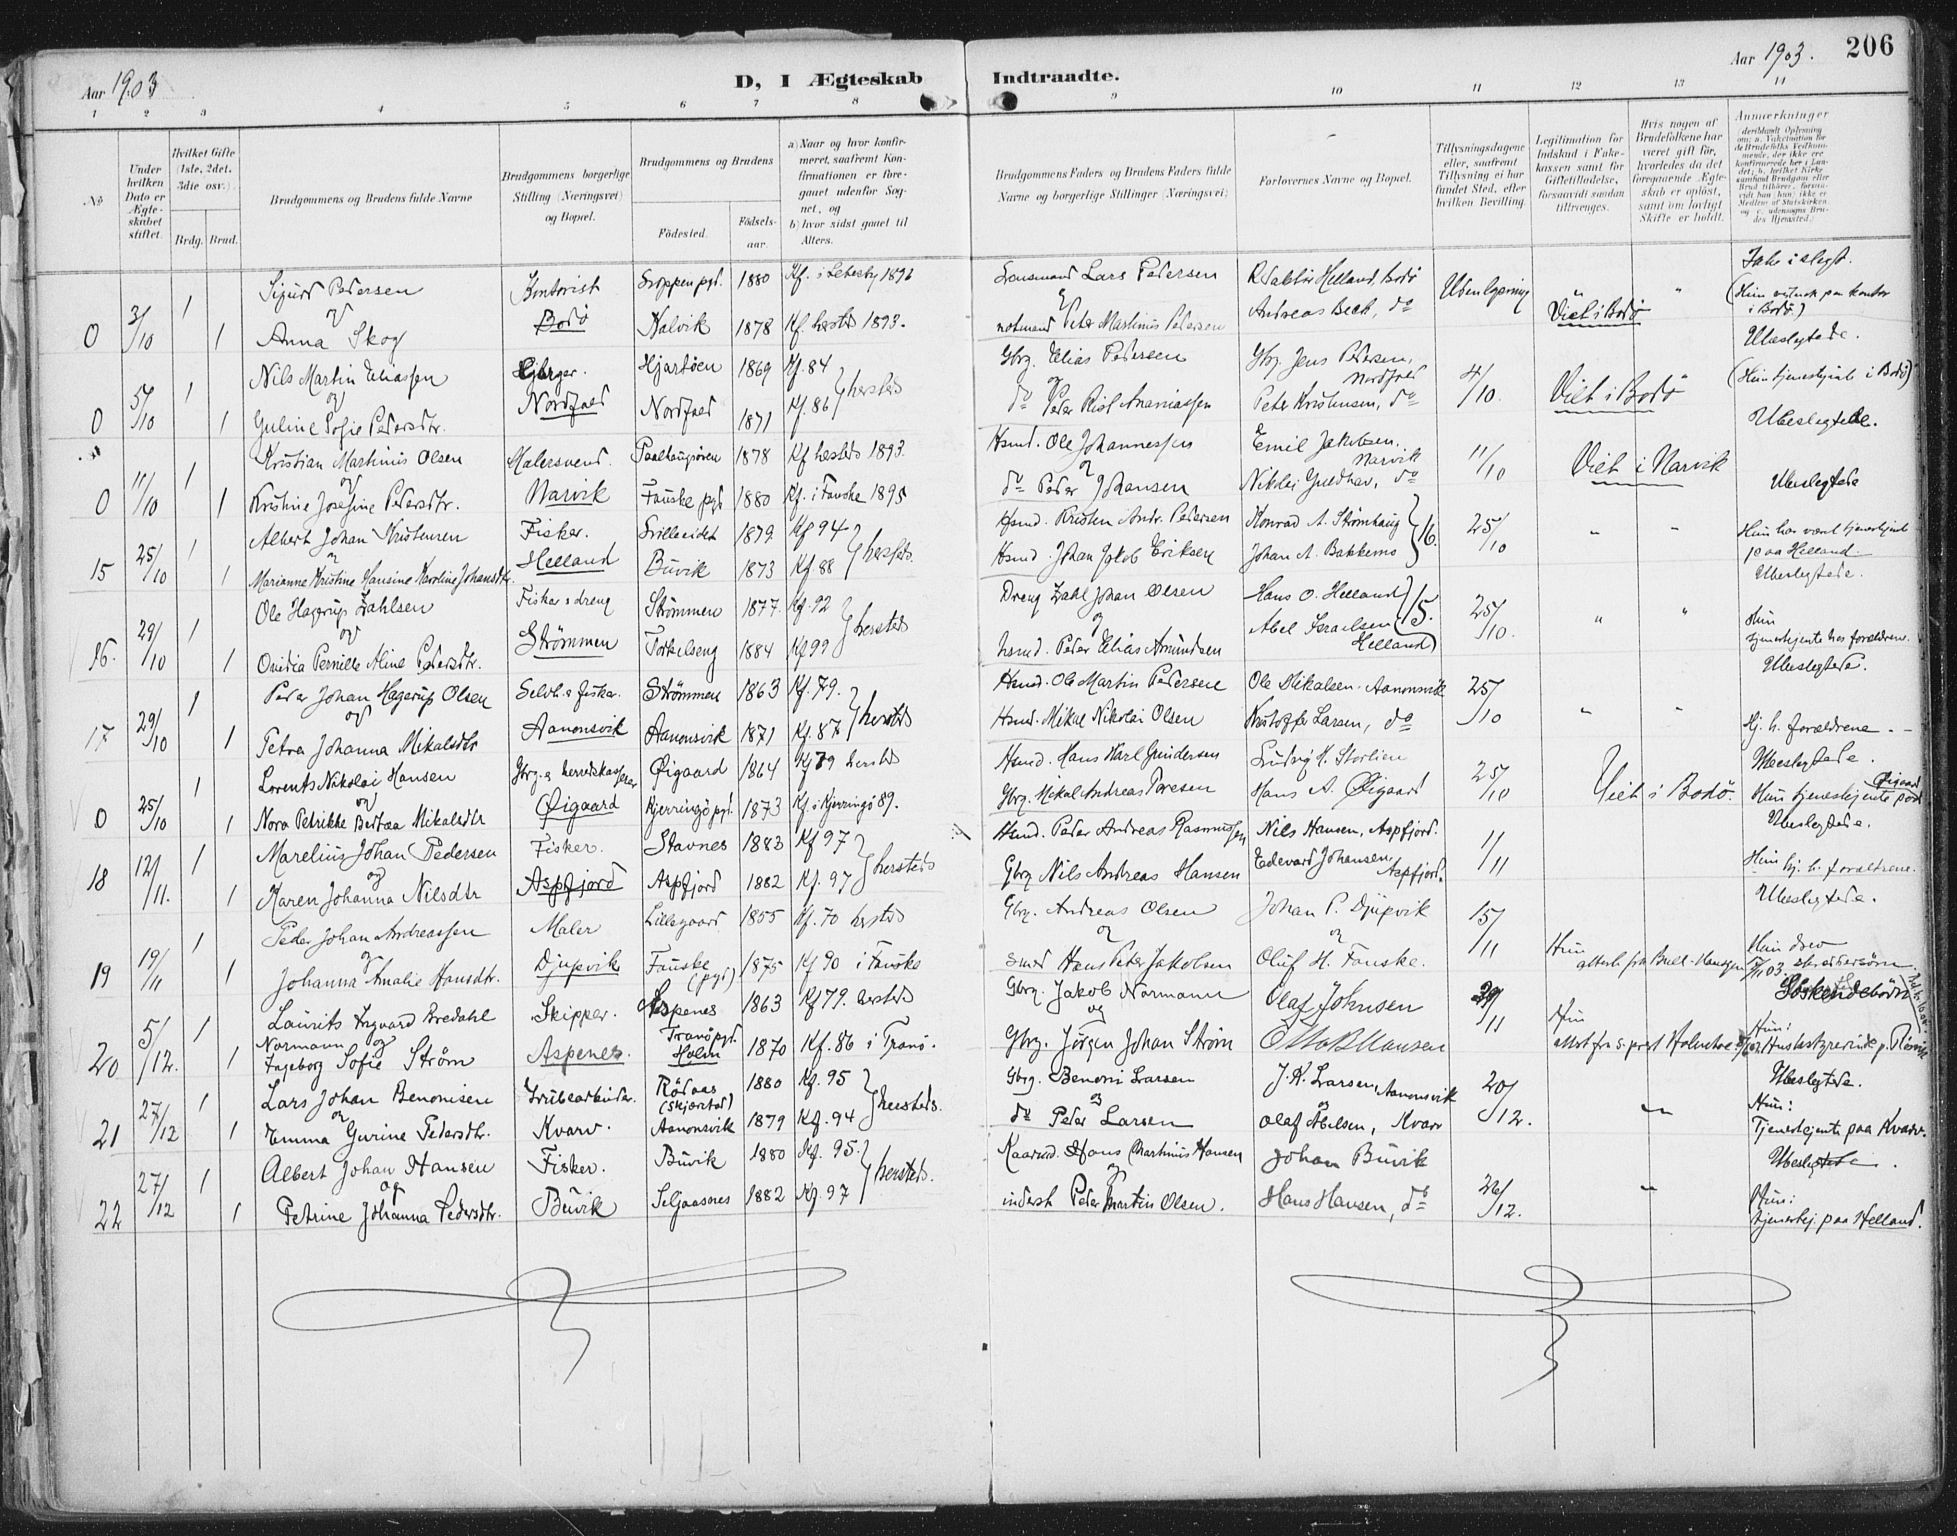 Aar 1903
D, I Ægteskab Indtraadte.
Aar 1903. 206
1 2 3 4 5 6 7 8 9 10 11 12 13 14
No
Under hvilken Dato er Ægteskabet stiftet.
Hvilket Gifte (1ste, 2det, 3die osv.).
Brdg. Brud.
Brudgommens og Brudens fulde Navne
Brudgommens borgerlige Stilling (Næringsvei) og Bopæl.
Brudgommens og Brudens
Födested. Födsels-aar.
a) Naar og hvor konfirmeret, saafremt Konfirmationen er foregaaet udenfor Sognet, og
b) hvor sidst gaaet til Alters.
Brudgommens Faders og Brudens Faders fulde Navne og borgerlige Stillinger (Næringsvei)
Forlovernes Navne og Bopæl.
Tillysningsdagene eller, saafremt Tillysning ei har fundet Sted, efter hvilken Bevilling.
Legitimation for Indskud i Enkekassen samt for Giftetilladelse, forsaavidt saadan tiltrænges.
Hvis nogen af Brudefolkene har været gift før, hvorledes da det foregaaende Ægteskab er oplöst, samt om lovligt Skifte er holdt.
Anmærkninger
0 3/10 1 Sigurd Pedersen Kontorist 1880 Kf. i Lebesby 1896 Lensmand Lars Pedersen Redaktör Helland, Bodö Viet i Bodö
og
1 Anna Skog Bodö Halvik 1878 Kf. hersteds 1893. notmand Peter Martinus Pedersen Andreas Beck, do Ubeslegtede.
0 5/10 1 Nils Martin Eliassen Hjartöen 1869 Kf. 84 hersteds Gbrg. Elias Pedersen Gbrg Jens Pedersen, Nordfold 4/10. Viet i Bodö (Hun tjenestepige i Bodö)
og
1 Guline Sofie Pedersdtr. Nordfold Nordfold 1871 Kf. 86 do Peter Kristensen, do Ubeslegtede.
0 11/10 1 Kristian Martinus Olsen Malersvend. 1878 Kf hersteds 1893. Hsmd. Ole Johannessen Emil Jakobsen, Narvik 11/10 Viet i Narvik
og
1 Kristine Josefine Pedersdtr. Narvik Fauske pgd 1880 Kf. i Fauske 1895 do Peder Johansen do Ubeslegtede
15 25/10 1 Albert Johan Kristensen Fisker. 1879 Kf 94 hersteds. Hsmd. Kristen Andr. Pedersen Konrad A. Strömhaug 16. 25/10 " " Hun har vært tjenestepige paa Helland.
1 Marianne Kristine Hansine Karoline Johansdtr. Helland Buvik 1873 Kf. 88 Hsmd. Johan Jakob Eriksen Johan A. Bakkemo Ubeslegtede.
16. 29/10 1 Ole Hagerup Zahlsen Fisker & dreng Strömmen 1877. Kf. 92 hersteds Dreng Zahl Johan Olsen Hans O. Helland 15. 25/10. " "
og
1 Ovidia Pernille Aline Pedersdtr. Strömmen Torkelseng 1884 Kf 99 husmd. Peder Elias Amundsen Abel Israelsen Helland Hun tjenestepige hos forældrene. Ubeslegtede.
17 29/10 1 Peder Johan Hagerup Olsen Selvh. & fisker. Strömmen 1863 Kf. 79. hersteds Hsmd. Ole Martin Pedersen Ole Mikalsen. Aanonsvik 25/10 " "
og
1 Petra Johanna Mikalsdtr Aanonsvik Aanonsvik 1871 Kf. 87 Hsmd. Mikal Nikolai Olsen Kristoffer Larsen, do Hj. h. forældrene. Ubeslegtede.
0 25/10 1 Lorents Nikolai Hansen Gbrg. & herredskasserer Øigaard 1864 Kf 79 hersteds Hsmd. Hans Karl Gundersen Ludvig H. Storlien 25/10 Viet i Bodö.
og
1 Nora Petrikke Bertea Mikalsdtr Øigaard Kjerringö pgd. 1873 Kf. i Kjerringö 89. Gbrg. Mikal Andreas Toresen Hans A. Øigaard Hun tjenestepige paa Øigaard Ubeslegtede.
18 12/11. 1 Marelius Johan Pedersen Fisker. Stavnes 1883 Kf 97 hersteds Hsmd. Peder Andreas Rasmussen Nils Hansen, Aspfjord. 1/11
og
1 Karen Johanna Nilsdtr Aspfjord Aspfjord 1882 Kf. 97 Gbrg Nils Andreas Hansen Edevard Johansen, Aspfjord. Hun hj. h. forældrene. Ubeslegtede.
19 19/11 1 Peder Johan Andreassen Maler Lillegaard 1855 Kf. 70 hersteds Gbrg. Andreas Olsen Johan P. Djupvik 15/11 Hun
og
1 Johanna Amalie Hansdtr. Djupvik Fauske (pgd) 1875 Kf 90 i Fauske smed Hans Peter Jakobsen Oluf H. Fauske.
Söskendebörn
20 5/12. 1 Laurits Ingvard Bredahl Normann Skipper. Aspenes 1863 Kf 79. hersteds Gbrg. Jakob Normann Olaf Johnsen 29/11 Hun
og
1 Ingeborg Sofie Ström Aspenes. Tranö pgd. Holm 1870 Kf. 86 i Tranö. Gbrg. Jörgen Johan Ström Otto B Hansen Hun: Husbestyrerinde p. Rösvik Ubeslegtede.
21 27/12 1 Lars Johan Benonisen Grubearbeider. Rödaas (Skjerstad) 1880 Kf. 95 hersteds. Gbrg. Benoni Larsen J. K. Larsen, Aanonsvik 20/12. "
og
1 Emma Gurine Pedersdtr. Kvarv. Aanonsvik 1879 Kf. 94 do Peder Larsen Olaf Abelsen, Kvarv Hun: Tjenestepige paa Kvarv. Ubeslegtede.
22 27/12 1 Albert Johan Hansen Fisker. Buvik 1880 Kf. 95. hersteds. Kaarmd. Hans Martinus Hansen Johan Buvik 26/12. "
og
1 Petrine Johanna Pedersdtr. Buvik Seljaasnes 1882 Kf. 97 inderst Peder Martin Olsen. Hans Hansen, do Hun: tjenestepige paa Helland.